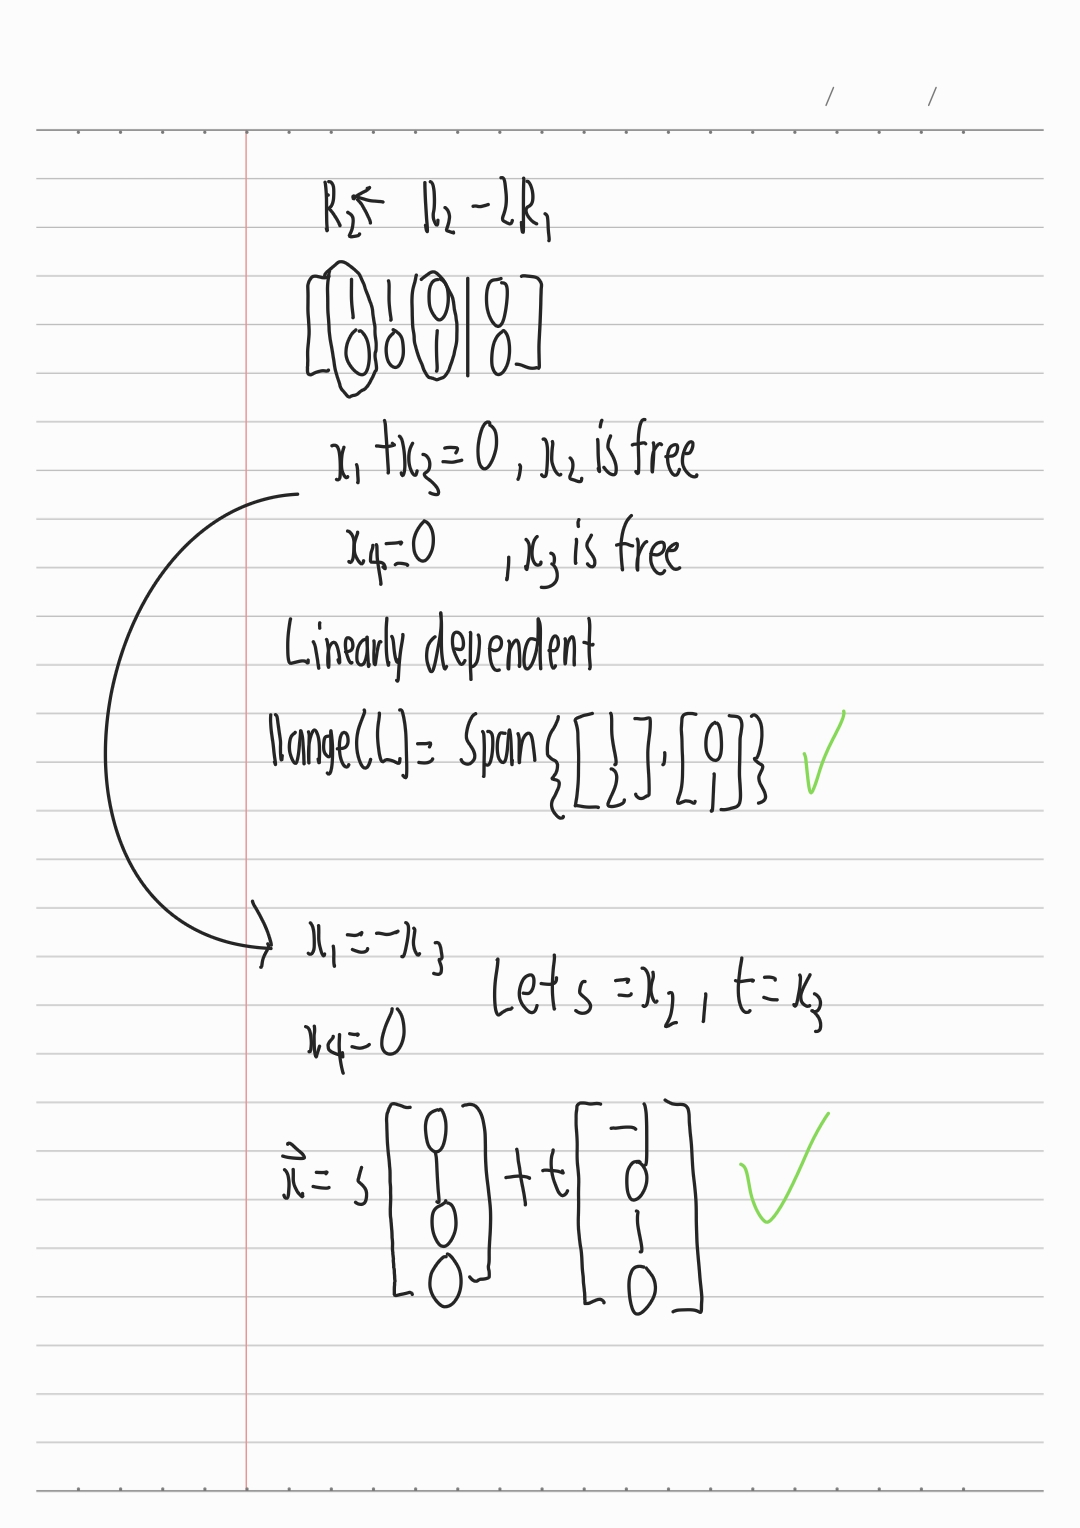 / /
R₂ ← R₂ - 2R₁
[ 1 1 0 | 0 ]
[ 0 0 1 | 0 ]
x₁ + x₃ = 0, x₂ is free
x₄ = 0 , x₃ is free
Linearly dependent
Range(L) = Span{[1 2], [0 1]} ✓
x₁ = -x₃
Let s = x₂, t = x₃
x₄ = 0
x⃗ = s[0 1 0 0] + t[-1 0 1 0] ✓